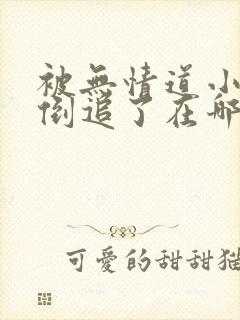 被無情道小
倒追了在哪
可愛的甜甜貓